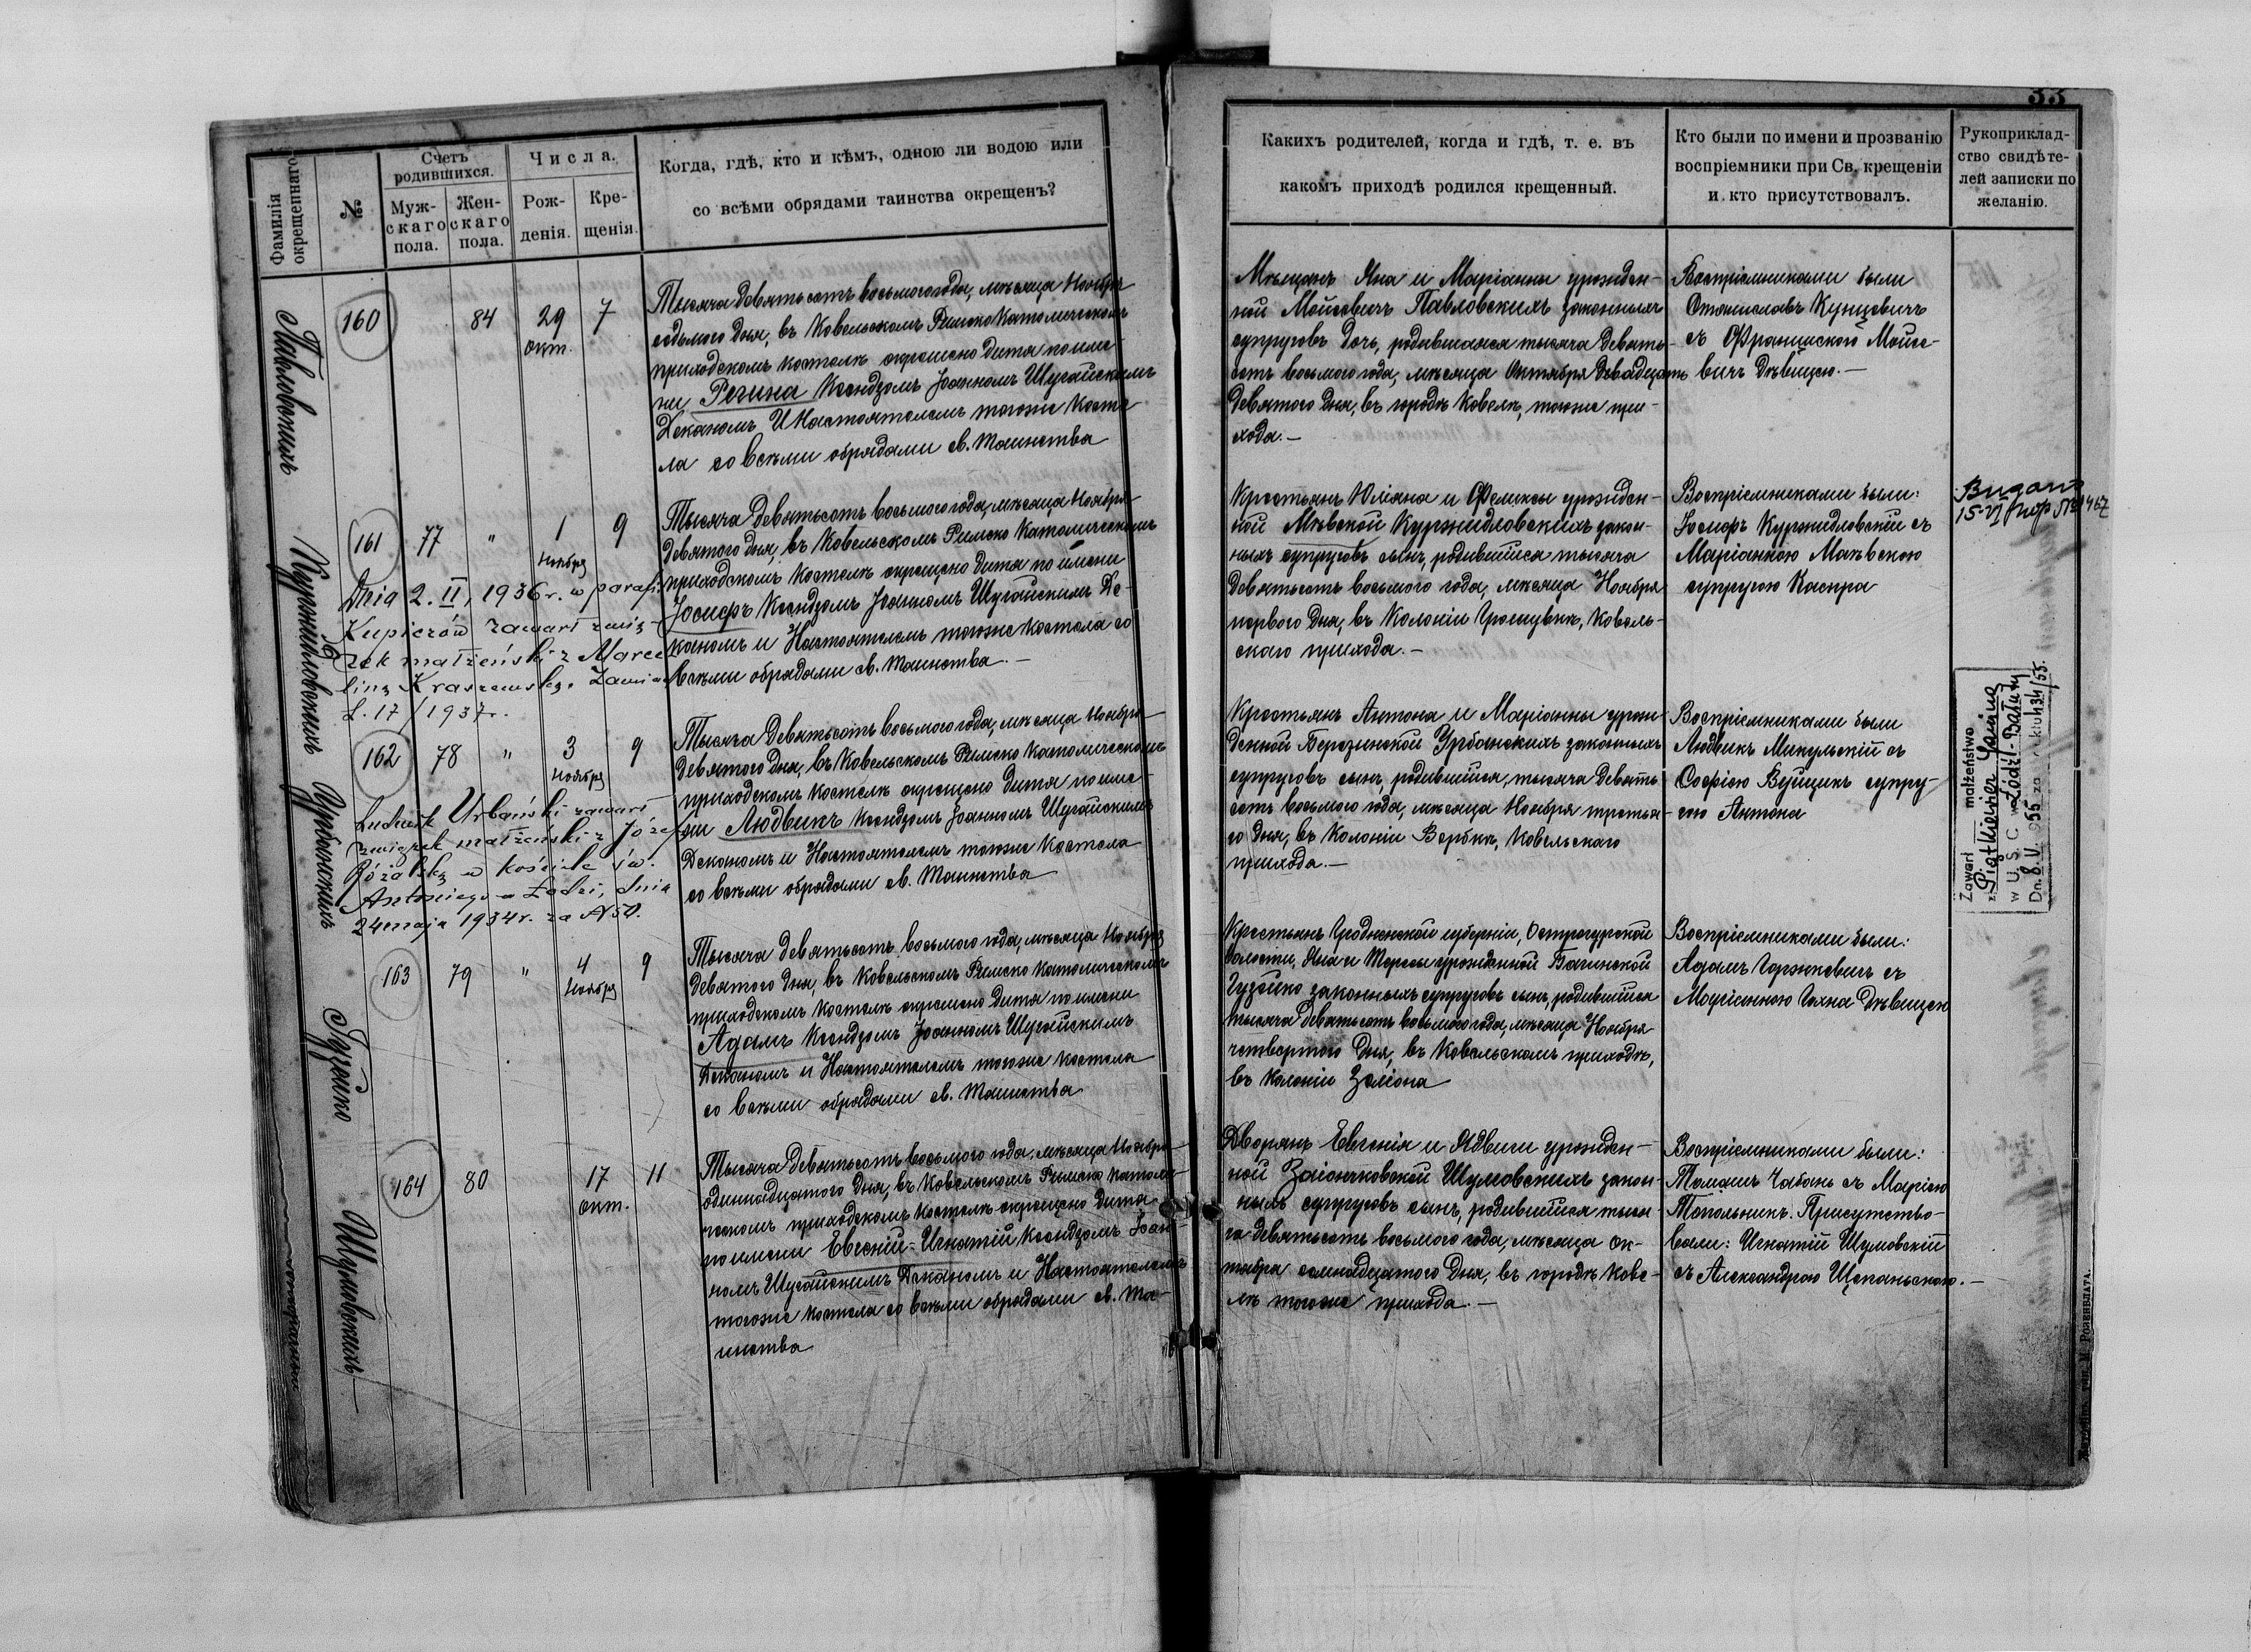 33
Фамилія
окрещеннаго
№
Счетъ
родившихся.
Муж-
скаго
пола.
Жен-
скаго
пола.
Числа.
Рож-
денія.
Кре-
щенія.
Когда, гдѣ, кто и кѣмъ, одною ли водою или
со всѣми обрядами таинства окрещенъ?
Какихъ родителей, когда и гдѣ, т. е. въ
какомъ приходѣ родился крещенный.
Кто были по имени и прозванію
воспріемники при Св. крещеніи
и кто присутствовалъ.
Рукоприклад-
ство свидѣте-
лей записки по
желанію.
Павловскихъ
160
84
29
окт.
7
Тысяча девятьсотъ восьмого года, мѣсяца Ноября
седьмого дня, въ Ковельскомъ Римско Католическомъ
приходскомъ костелѣ окрещено дитя по име-
ни Регина Ксендзомъ Іоанномъ Шугайскимъ
Деканомъ и Настоятелемъ тогоже косте-
ла со всѣми обрядами св. таинства
Мѣщанъ Яна и Маріанны урожден-
ной Мойсевичъ Павловскихъ законныхъ
супруговъ дочь, родившаяся тысяча девять-
сотъ восьмого года, мѣсяца Октября двадцать
девятого дня, въ городѣ Ковелѣ, тогоже при-
хода.—
Воспріемниками были
Станиславъ Кунцевичъ
съ Францишкою Мойсе-
вичъ дѣвицею.—
Куржидловскихъ
161
77
"
1
Ноября
9
Тысяча девятьсотъ восьмого года, мѣсяца Ноября
девятого дня, въ Ковельскомъ Римско Католическомъ
приходскомъ костелѣ окрещено дитя по имени
Іосифъ Ксендзомъ Іоанномъ Шугайскимъ Де-
каномъ и Настоятелемъ тогоже костела со
всѣми обрядами св. таинства.—
Крестьянъ Юліяна и Феликсы урожден-
ной Куржидловскихъ закон-
ныхъ супруговъ сынъ, родившійся тысяча
девятьсотъ восьмого года, мѣсяца Ноября
первого дня, въ Колоніи Ковель-
скаго прихода.—
Воспріемниками были:
Іосифъ Куржидловскій съ
Маріанною
супругою Каспра
15-VI
Dnia 2. II, 1936 r. w parafii
Kupiczów zawarł zwią-
zek małżeński z Marce-
liną Kraszewską.
L. 17/1937 r.
Урбанскихъ
162
78
"
3
Ноября
9
Тысяча девятьсотъ восьмого года, мѣсяца Ноября
девятого дня, въ Ковельскомъ Римско Католическомъ
приходскомъ костелѣ окрещено дитя по име-
ни Людвикъ Ксендзомъ Іоанномъ Шугайскимъ
Деканомъ и Настоятелемъ тогоже костела
со всѣми обрядами св. таинства
Крестьянъ Антона и Маріанны урож-
денной Березинской Урбанскихъ законныхъ
супруговъ сынъ, родившійся, тысяча девять-
сотъ восьмого года, мѣсяца Ноября третья-
го дня, въ Колоніи Вербка, Ковельскаго
прихода.—
Воспріемниками были
Людвикъ Микульскій съ
Софіею Вуйцикъ супру-
гою Антона
Ludwik Urbański zawarł
związek małżeński z Józefą
Różalską w kościele św.
Antoniego w Łodzi, dnia
24 maja 1934 r. za № 50.
Zawarł małżeństwo
z Piątkiewicz Janiną
w U. S. C. w Łódź-Bałuty
Dn. 8. V. 955 za aktu 434/55.
Гузейко
163
79
"
4
Ноября
9
Тысяча девятьсотъ восьмого года, мѣсяца Ноября
девятого дня, въ Ковельскомъ Римско Католическомъ
приходскомъ костелѣ окрещено дитя по имени
Адамъ Ксендзомъ Іоанномъ Шугайскимъ
Деканомъ и Настоятелемъ тогоже костела
со всѣми обрядами св. таинства
Крестьянъ Гродненской губерніи,
волости, Яна и Терезы урожденной
Гузейко законныхъ супруговъ сынъ, родившійся
тысяча девятьсотъ восьмого года, мѣсяца Ноября
четвертого дня, въ Ковельскомъ приходѣ,
въ Колоніи
Воспріемниками были:
Адамъ съ
Маріанною дѣвицею
Шумовскихъ—
164
80
17
окт.
11
Тысяча девятьсотъ восьмого года, мѣсяца Ноября
одиннадцатого дня, въ Ковельскомъ Римско Католи-
ческомъ приходскомъ костелѣ окрещено дитя
по имени Евгеній-Игнатій Ксендзомъ Іоан-
номъ Шугайскимъ Деканомъ и Настоятелемъ
тогоже костела со всѣми обрядами св. та-
инства
Дворянъ Евгенія и Ядвиги урожден-
ной Заіончковской Шумовскихъ закон-
ныхъ супруговъ сынъ, родившійся тыся-
ча девятьсотъ восьмого года, мѣсяца ок-
тября семнадцатого дня, въ городѣ Кове-
лѣ тогоже прихода.—
Воспріемниками были:
Томашъ Чабанъ съ Маріею
Топольникъ. Присутство-
вали: Игнатій Шумовскій
съ Александрою Щепаньскою.—